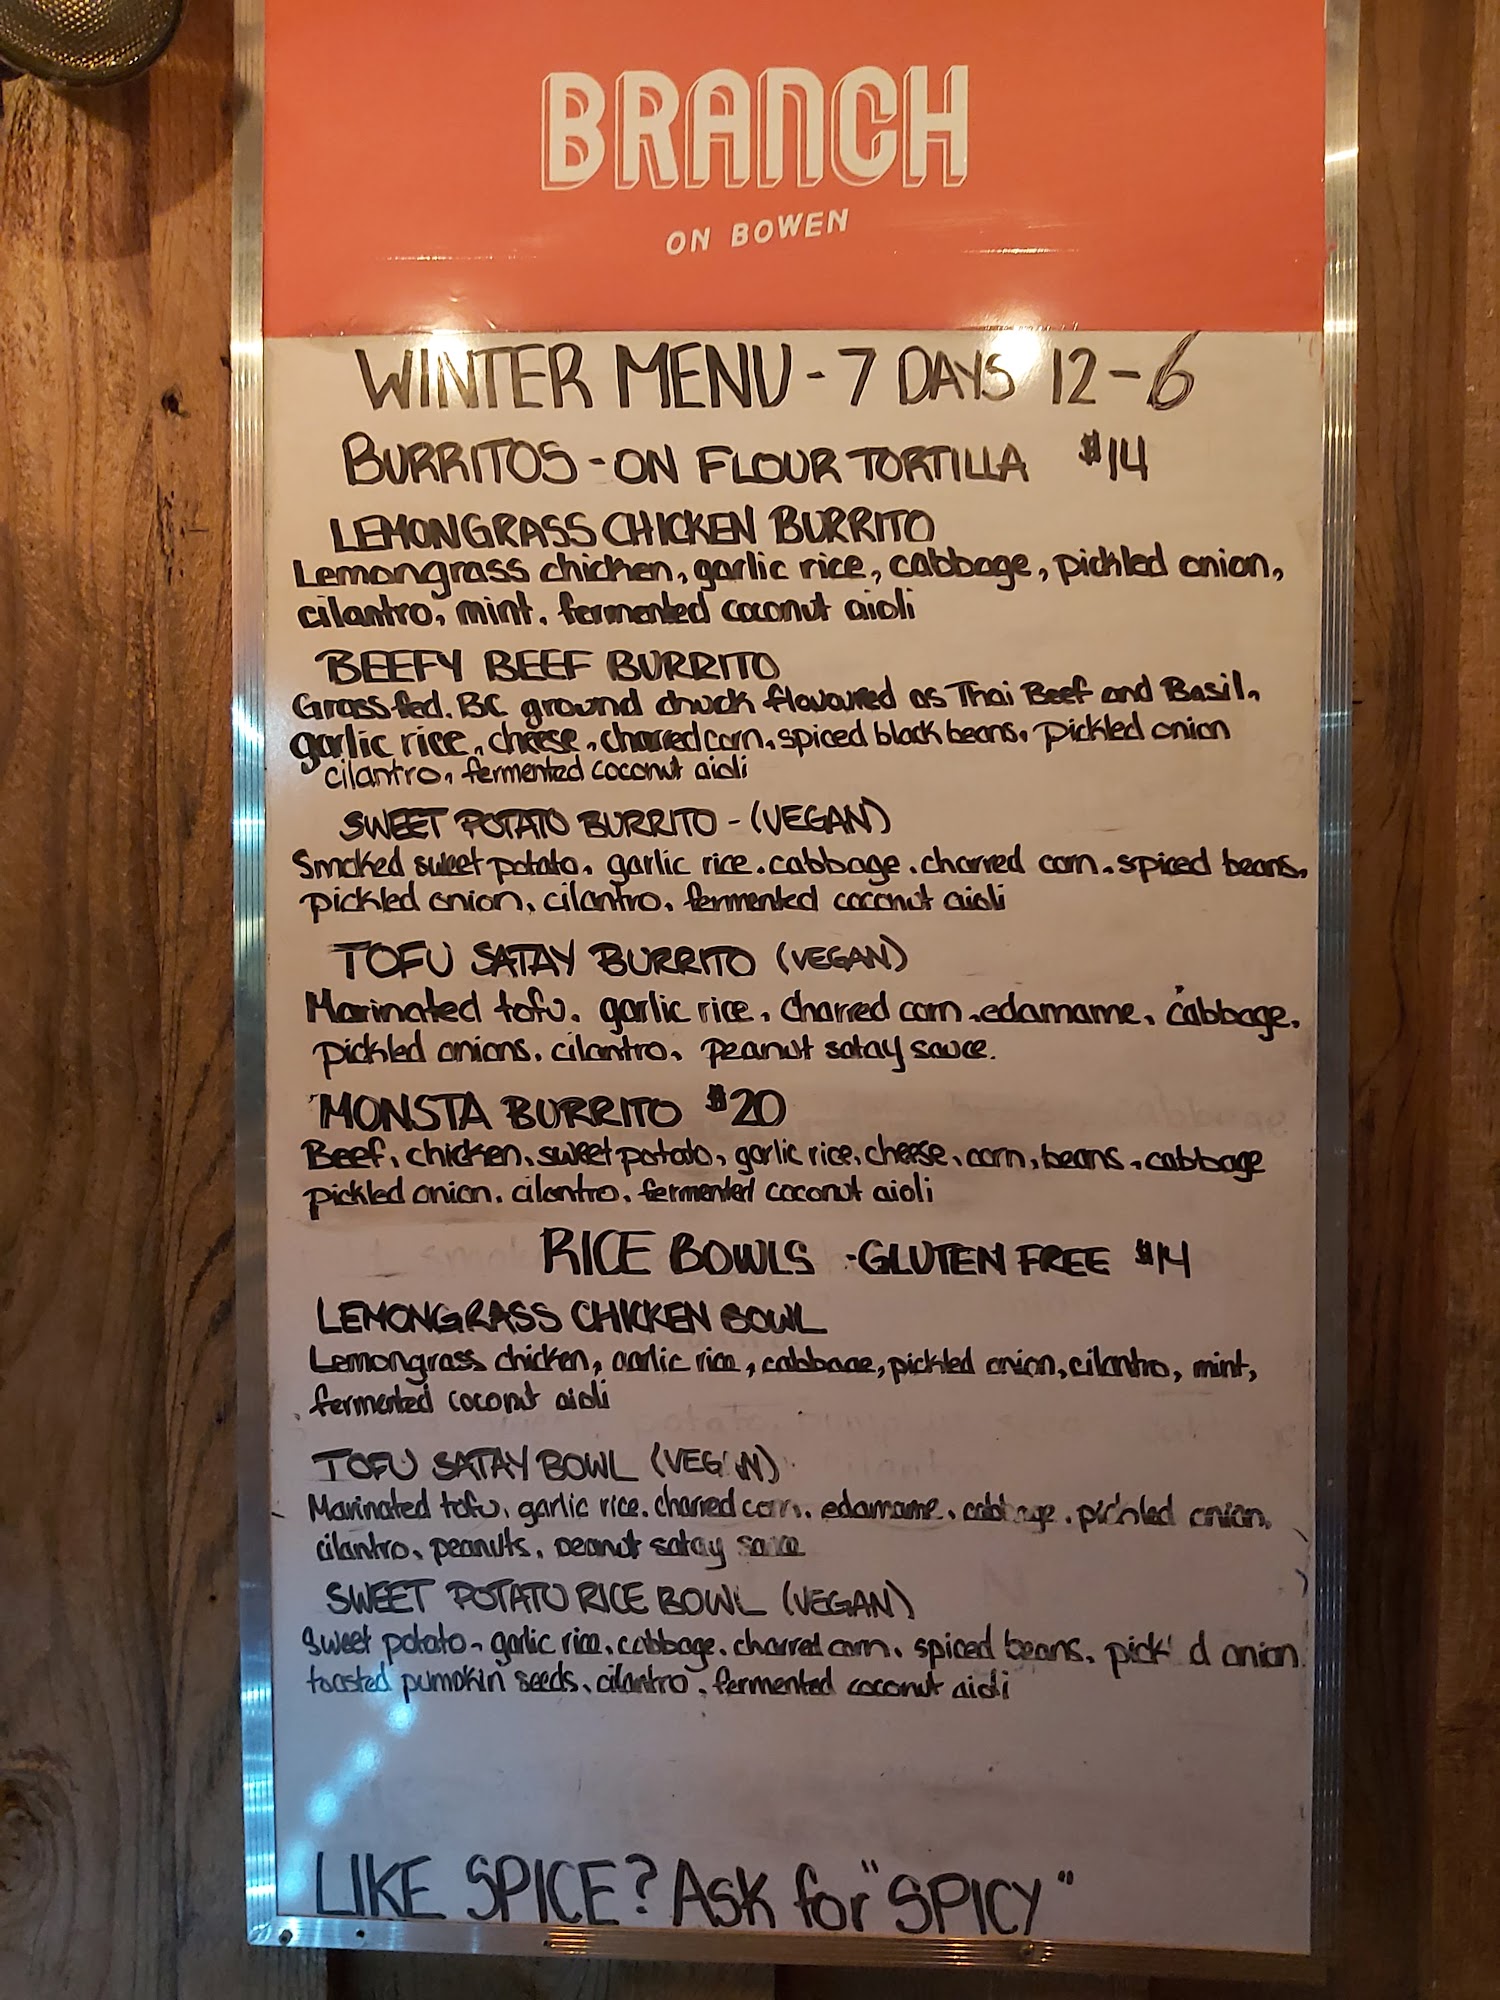 BRANCH
ON BOWEN
WINTER MENU - 7 DAYS 12-6
BURRITOS - ON FLOUR TORTILLA $14
LEMONGRASS CHICKEN BURRITO
Lemongrass chicken, garlic rice, cabbage, pickled onion,
cilantro, mint, fermented coconut aioli
BEEFY BEEF BURRITO
Grass-fed, BC ground chuck flavoured as Thai Beef and Basil,
garlic rice, cheese, charred corn, spiced black beans, pickled onion
cilantro, fermented coconut aioli
SWEET POTATO BURRITO - (VEGAN)
Smoked sweet potato, garlic rice, cabbage, charred corn, spiced beans,
pickled onion, cilantro, fermented coconut aioli
TOFU SATAY BURRITO (VEGAN)
Marinated tofu, garlic rice, charred corn, edamame, cabbage,
pickled onions, cilantro, peanut satay sauce.
MONSTA BURRITO $20
Beef, chicken, sweet potato, garlic rice, cheese, corn, beans, cabbage
pickled onion, cilantro, fermented coconut aioli
RICE BOWLS - GLUTEN FREE $14
LEMONGRASS CHICKEN BOWL
Lemongrass chicken, garlic rice, cabbage, pickled onion, cilantro, mint,
fermented coconut aioli
TOFU SATAY BOWL (VEGAN)
Marinated tofu, garlic rice, charred corn, edamame, cabbage, pickled onion,
cilantro, peanuts, peanut satay sauce
SWEET POTATO RICE BOWL (VEGAN)
Sweet potato, garlic rice, cabbage, charred corn, spiced beans, pickled onion
toasted pumpkin seeds, cilantro, fermented coconut aioli
LIKE SPICE? Ask for "SPICY"